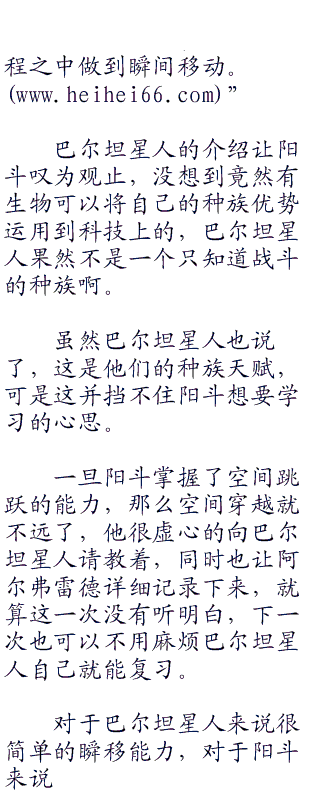 程之中做到瞬间移动。
(www.heihei66.com)”
巴尔坦星人的介绍让阳
斗叹为观止，没想到竟然有
生物可以将自己的种族优势
运用到科技上的，巴尔坦星
人果然不是一个只知道战斗
的种族啊。
虽然巴尔坦星人也说
了，这是他们的种族天赋，
可是这并挡不住阳斗想要学
习的心思。
一旦阳斗掌握了空间跳
跃的能力，那么空间穿越就
不远了，他很虚心的向巴尔
坦星人请教着，同时也让阿
尔弗雷德详细记录下来，就
算这一次没有听明白，下一
次也可以不用麻烦巴尔坦星
人自己就能复习。
对于巴尔坦星人来说很
简单的瞬移能力，对于阳斗
来说